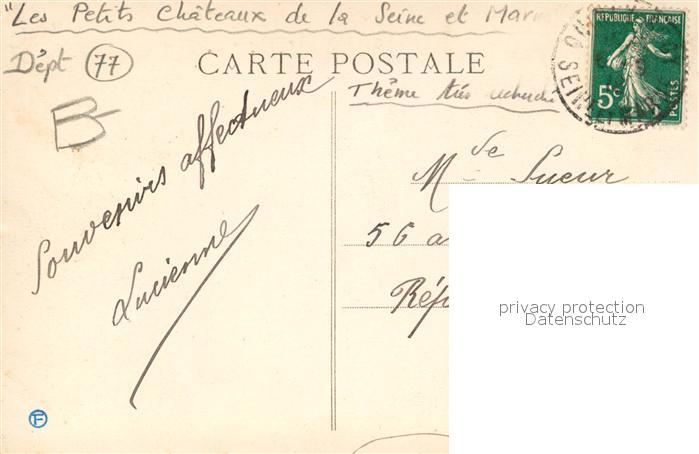 "Les Petits Châteaux de la Seine et Marn
Dépt 77
CARTE POSTALE
Thème très recherché
RÉPUBLIQUE FRANÇAISE
5c
POSTES
B
Souvenirs affectueux
Lucienne
Mde Sueur
56 a
Rép
privacy protection
Datenschutz
F